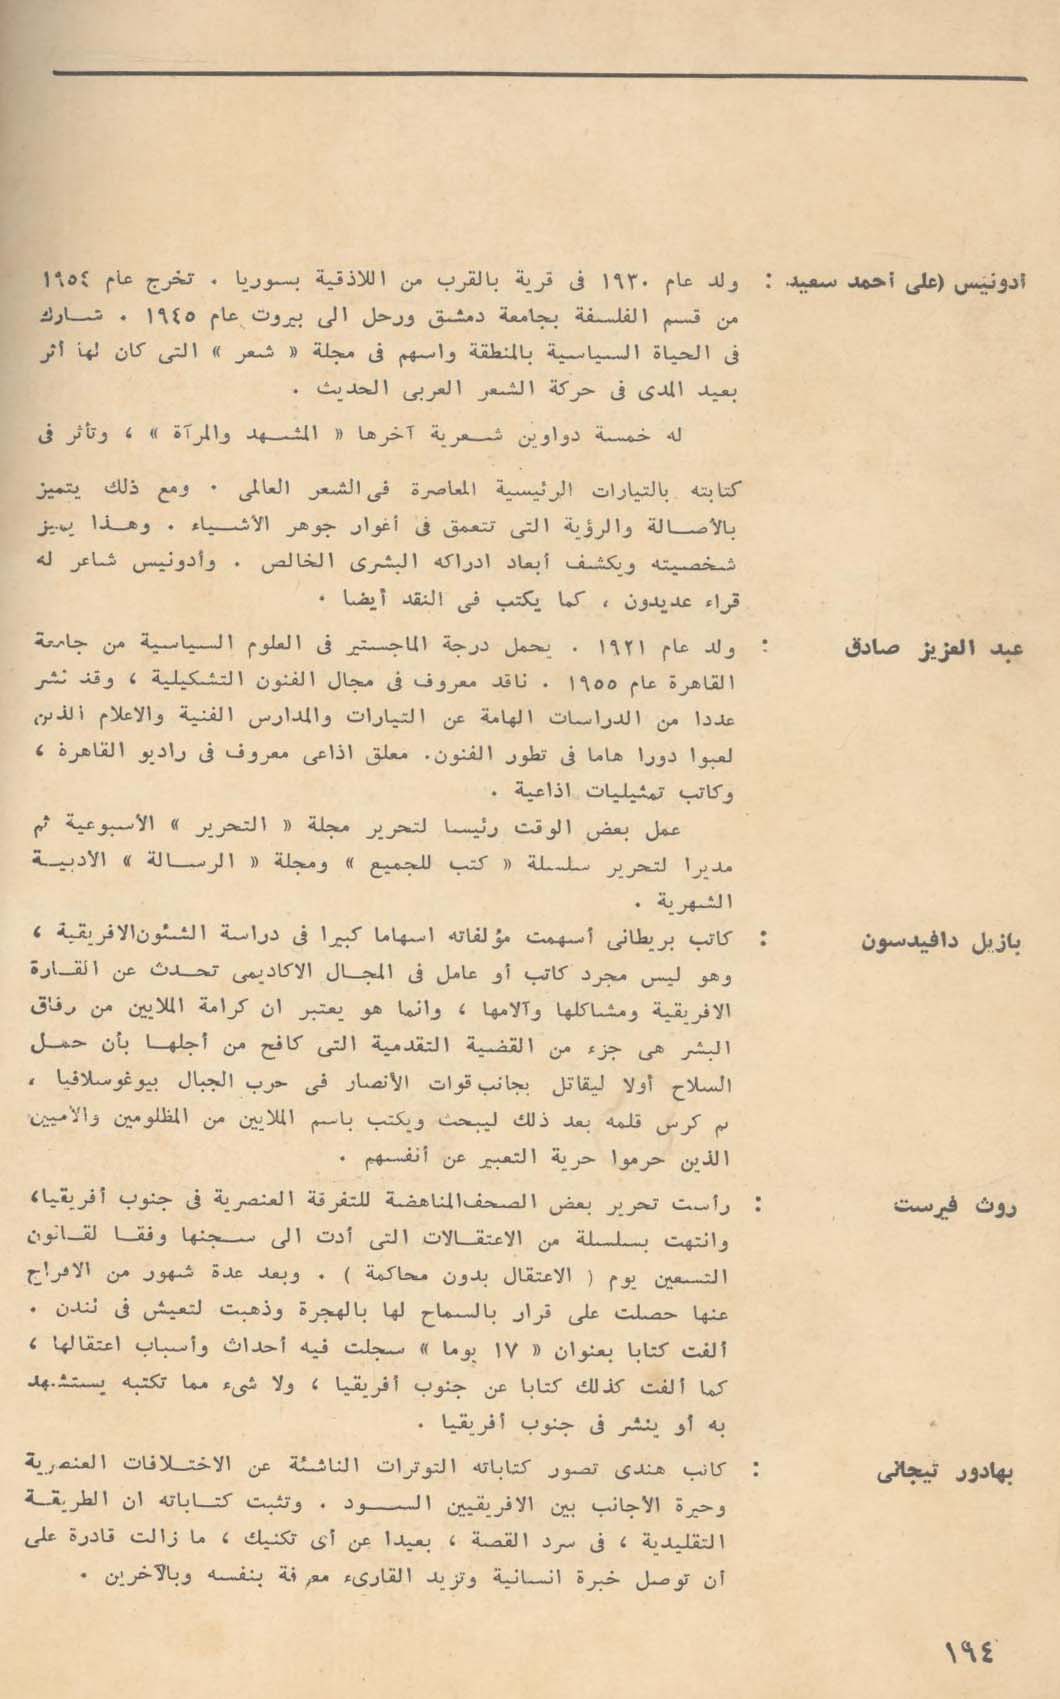 أدونيس (على أحمد سعيد. : ولد عام ١٩٣٠ فى قرية بالقرب من اللاذقية بسوريا . تخرج عام ١٩٥٤
من قسم الفلسفة بجامعة دمشق ورحل الى بيروت عام ١٩٤٥ . شــارك
فى الحياة السياسية بالمنطقة واسهم فى مجلة « شعر » التى كان لها أثر
بعيد المدى فى حركة الشعر العربى الحديث .
له خمسة دواوين شــعرية آخرها « المشــهد والمرآة » ، وتأثر فى
كتابته بالتيارات الرئيسية المعاصرة فى الشعر العالمى . ومع ذلك يتميز
بالأصــالة والرؤية التى تتعمق فى أغوار جوهر الأشــياء . وهــذا يميز
شخصيته ويكشف أبعاد ادراكه البشرى الخالص . وأدونيس شاعر له
قراء عديدون ، كما يكتب فى النقد أيضا .
عبد العزيز صادق : ولد عام ١٩٢١ . يحمل درجة الماجستير فى العلوم السياسية من جامعة
القاهرة عام ١٩٥٥ . ناقد معروف فى مجال الفنون التشكيلية ، وقد نشر
عددا من الدراسات الهامة عن التيارات والمدارس الفنية والاعلام الذين
لعبوا دورا هاما فى تطور الفنون. معلق اذاعى معروف فى راديو القاهرة ،
وكاتب تمثيليات اذاعية .
عمل بعض الوقت رئيسا لتحرير مجلة « التحرير » الأسبوعية ثم
مديرا لتحرير سلسلة « كتب للجميع » ومجلة « الرســالة » الأدبيــة
الشهرية .
بازيل دافيدسون : كاتب بريطانى أسهمت مؤلفاته اسهاما كبيرا فى دراسة الشئون الافريقية ،
وهو ليس مجرد كاتب أو عامل فى المجــال الاكاديمى تحــدث عن القــارة
الافريقية ومشاكلها وآلامها ، وانما هو يعتبر ان كرامة الملايين من رفاق
البشر هى جزء من القضية التقدمية التى كافح من أجلهــا بأن حمــل
السلاح أولا ليقاتل بجانب قوات الأنصار فى حرب الجبال بيوغوسلافيا ،
ثم كرس قلمه بعد ذلك ليبحث ويكتب باسم الملايين من المظلومين والأميين
الذين حرموا حرية التعبير عن أنفسهم .
روث فيرست : رأست تحرير بعض الصحف المناهضة للتفرقة العنصرية فى جنوب أفريقيا،
وانتهت بسلسلة من الاعتقــالات التى أدت الى ســجنها وفقــا لقــانون
التسعين يوم ( الاعتقال بدون محاكمة ) . وبعد عدة شهور من الافراج
عنها حصلت على قرار بالسماح لها بالهجرة وذهبت لتعيش فى لندن .
ألفت كتابا بعنوان « ١٧ يوما » سجلت فيه أحداث وأسباب اعتقالها ،
كما ألفت كذلك كتابا عن جنوب أفريقيا ، ولا شىء مما تكتبه يستشهد
به أو ينشر فى جنوب أفريقيا .
بهادور تيجانى : كاتب هندى تصور كتاباته التوترات الناشئة عن الاختــلافات العنصرية
وحيرة الأجانب بين الافريقيين الســـود . وتثبت كتــاباته ان الطريقــة
التقليدية ، فى سرد القصة ، بعيدا عن أى تكنيك ، ما زالت قادرة على
أن توصل خبرة انسانية وتزيد القارىء معرفة بنفسه وبالآخرين .
١٩٤